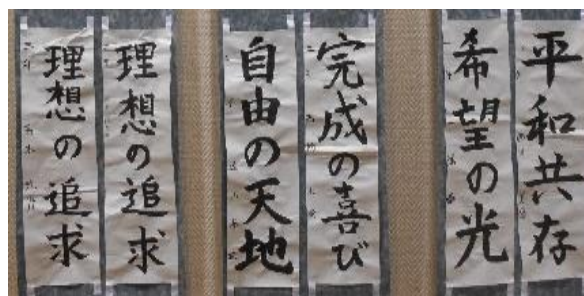 平和共存
希望の光
完成の喜び
自由の天地
理想の追求
理想の追求